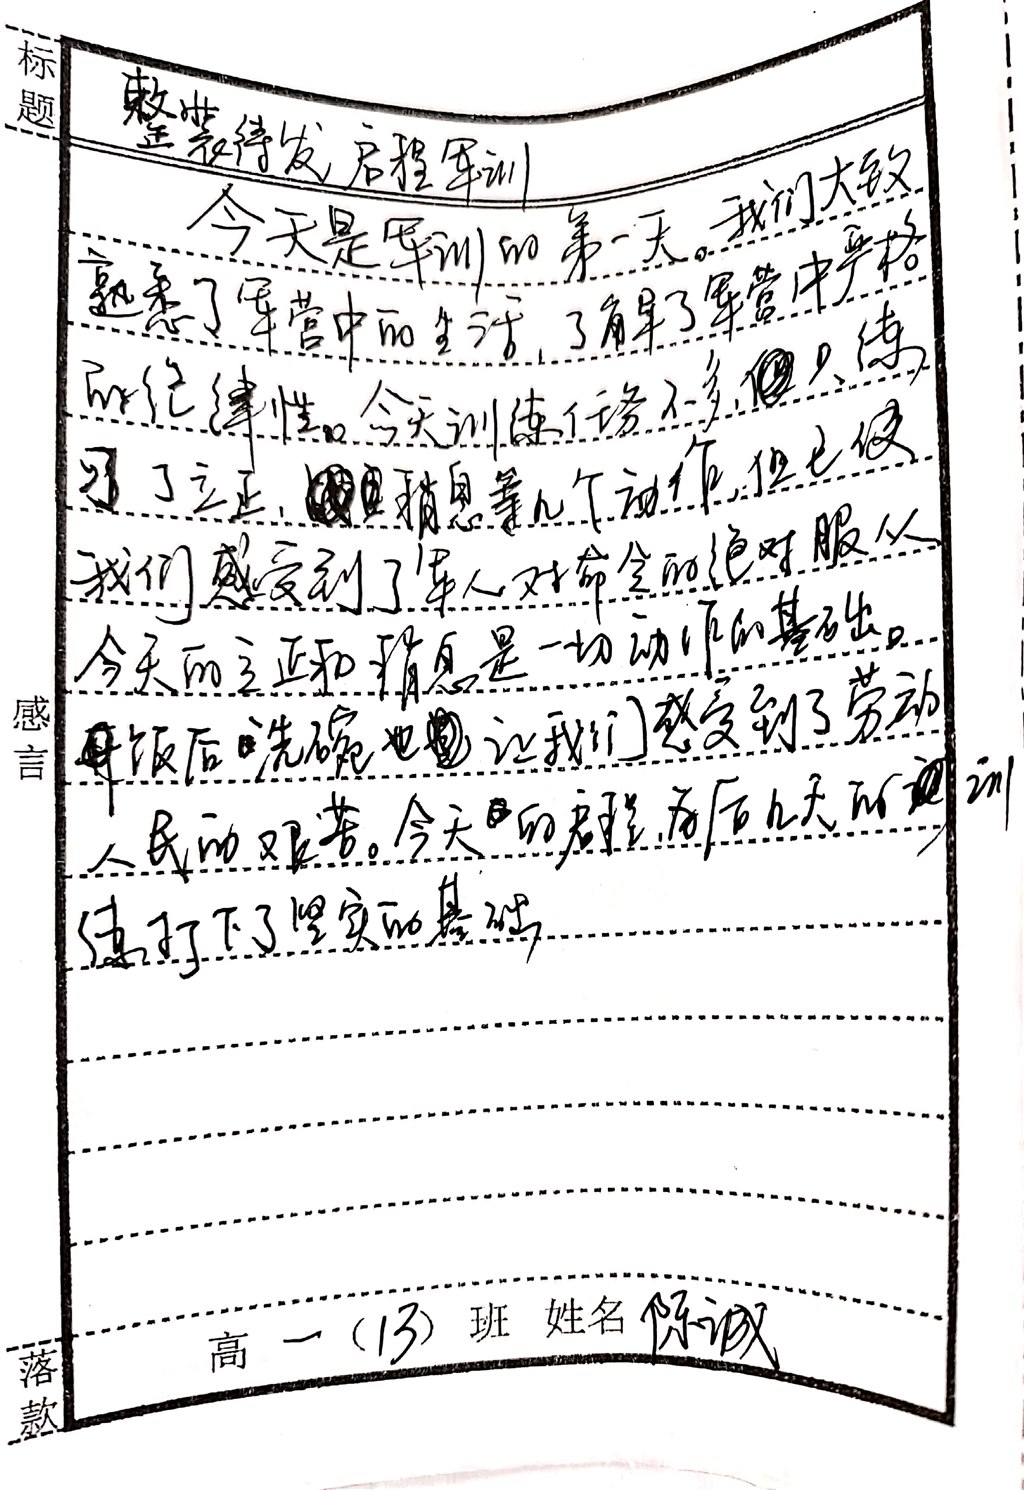 标题
整装待发 启程军训
今天是军训的第一天。我们大致
熟悉了军营中的生活，了解了军营中严格
的纪律性。今天训练任务不多，只练
习了立正、稍息等几个动作，但已使
我们感受到了军人对命令的绝对服从
今天的立正和稍息是一切动作的基础。
饭后洗碗也让我们感受到了劳动
人民的艰苦。今天的启程，为后几天的训
练打下了坚实的基础
感言
高一（13）班 姓名 陈诚
落款